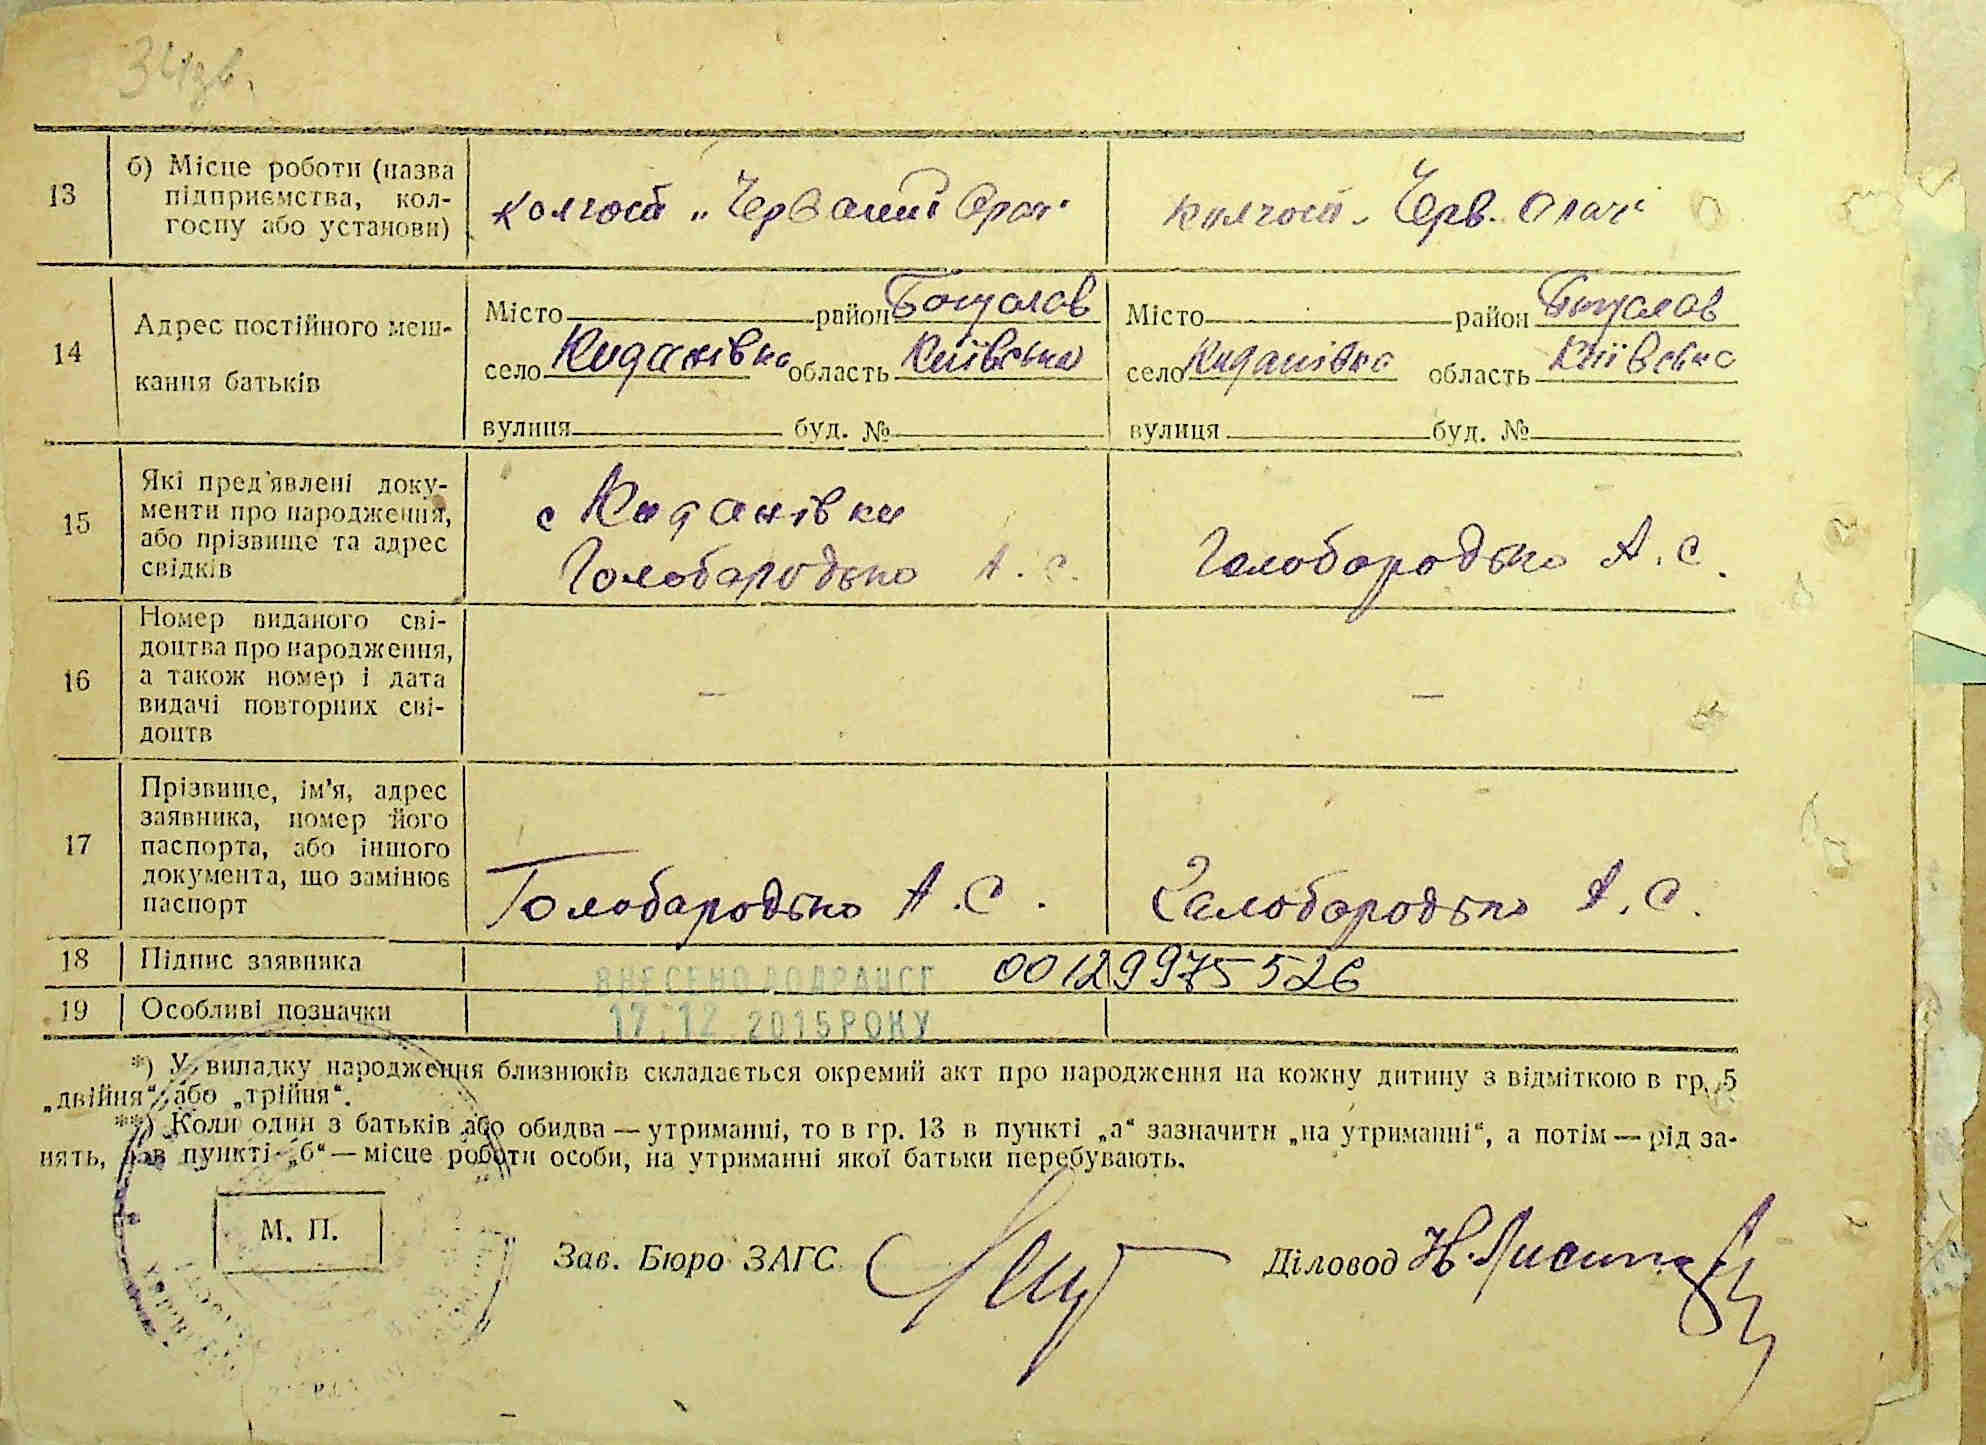 34зв.
13
б) Місце роботи (назва
підприємства, кол-
госпу або установи)
колгосп „Червоний Орач"
колгосп „Черв. Орач"
14
Адрес постійного меш-
кання батьків
Місто район Богуслав
село Киданівка область Київська
вулиця буд. №
Місто район Богуслав
село Киданівка область Київська
вулиця буд. №
15
Які пред'явлені доку-
менти про народження,
або прізвище та адрес
свідків
с Киданівки
Голобородько А. С.
Голобородько А. С.
16
Номер виданого сві-
доцтва про народження,
а також номер і дата
видачі повторних сві-
доцтв
–
–
17
Прізвище, ім'я, адрес
заявника, номер його
паспорта, або іншого
документа, що замінює
паспорт
Голобородько А. С.
Голобородько А. С.
18
Підпис заявника
ВНЕСЕНО ДО ДРАЦСГ
00129975526
19
Особливі позначки
17.12.2015 РОКУ
*) У випадку народження близнюків складається окремий акт про народження на кожну дитину з відміткою в гр. 5
„двійня" або „трійня".
**) Коли один з батьків або обидва — утриманці, то в гр. 13 в пункті „а" зазначити „на утриманні", а потім — рід за-
нять, а в пункті „б" — місце роботи особи, на утриманні якої батьки перебувають.
М. П.
Зав. Бюро ЗАГС
Діловод